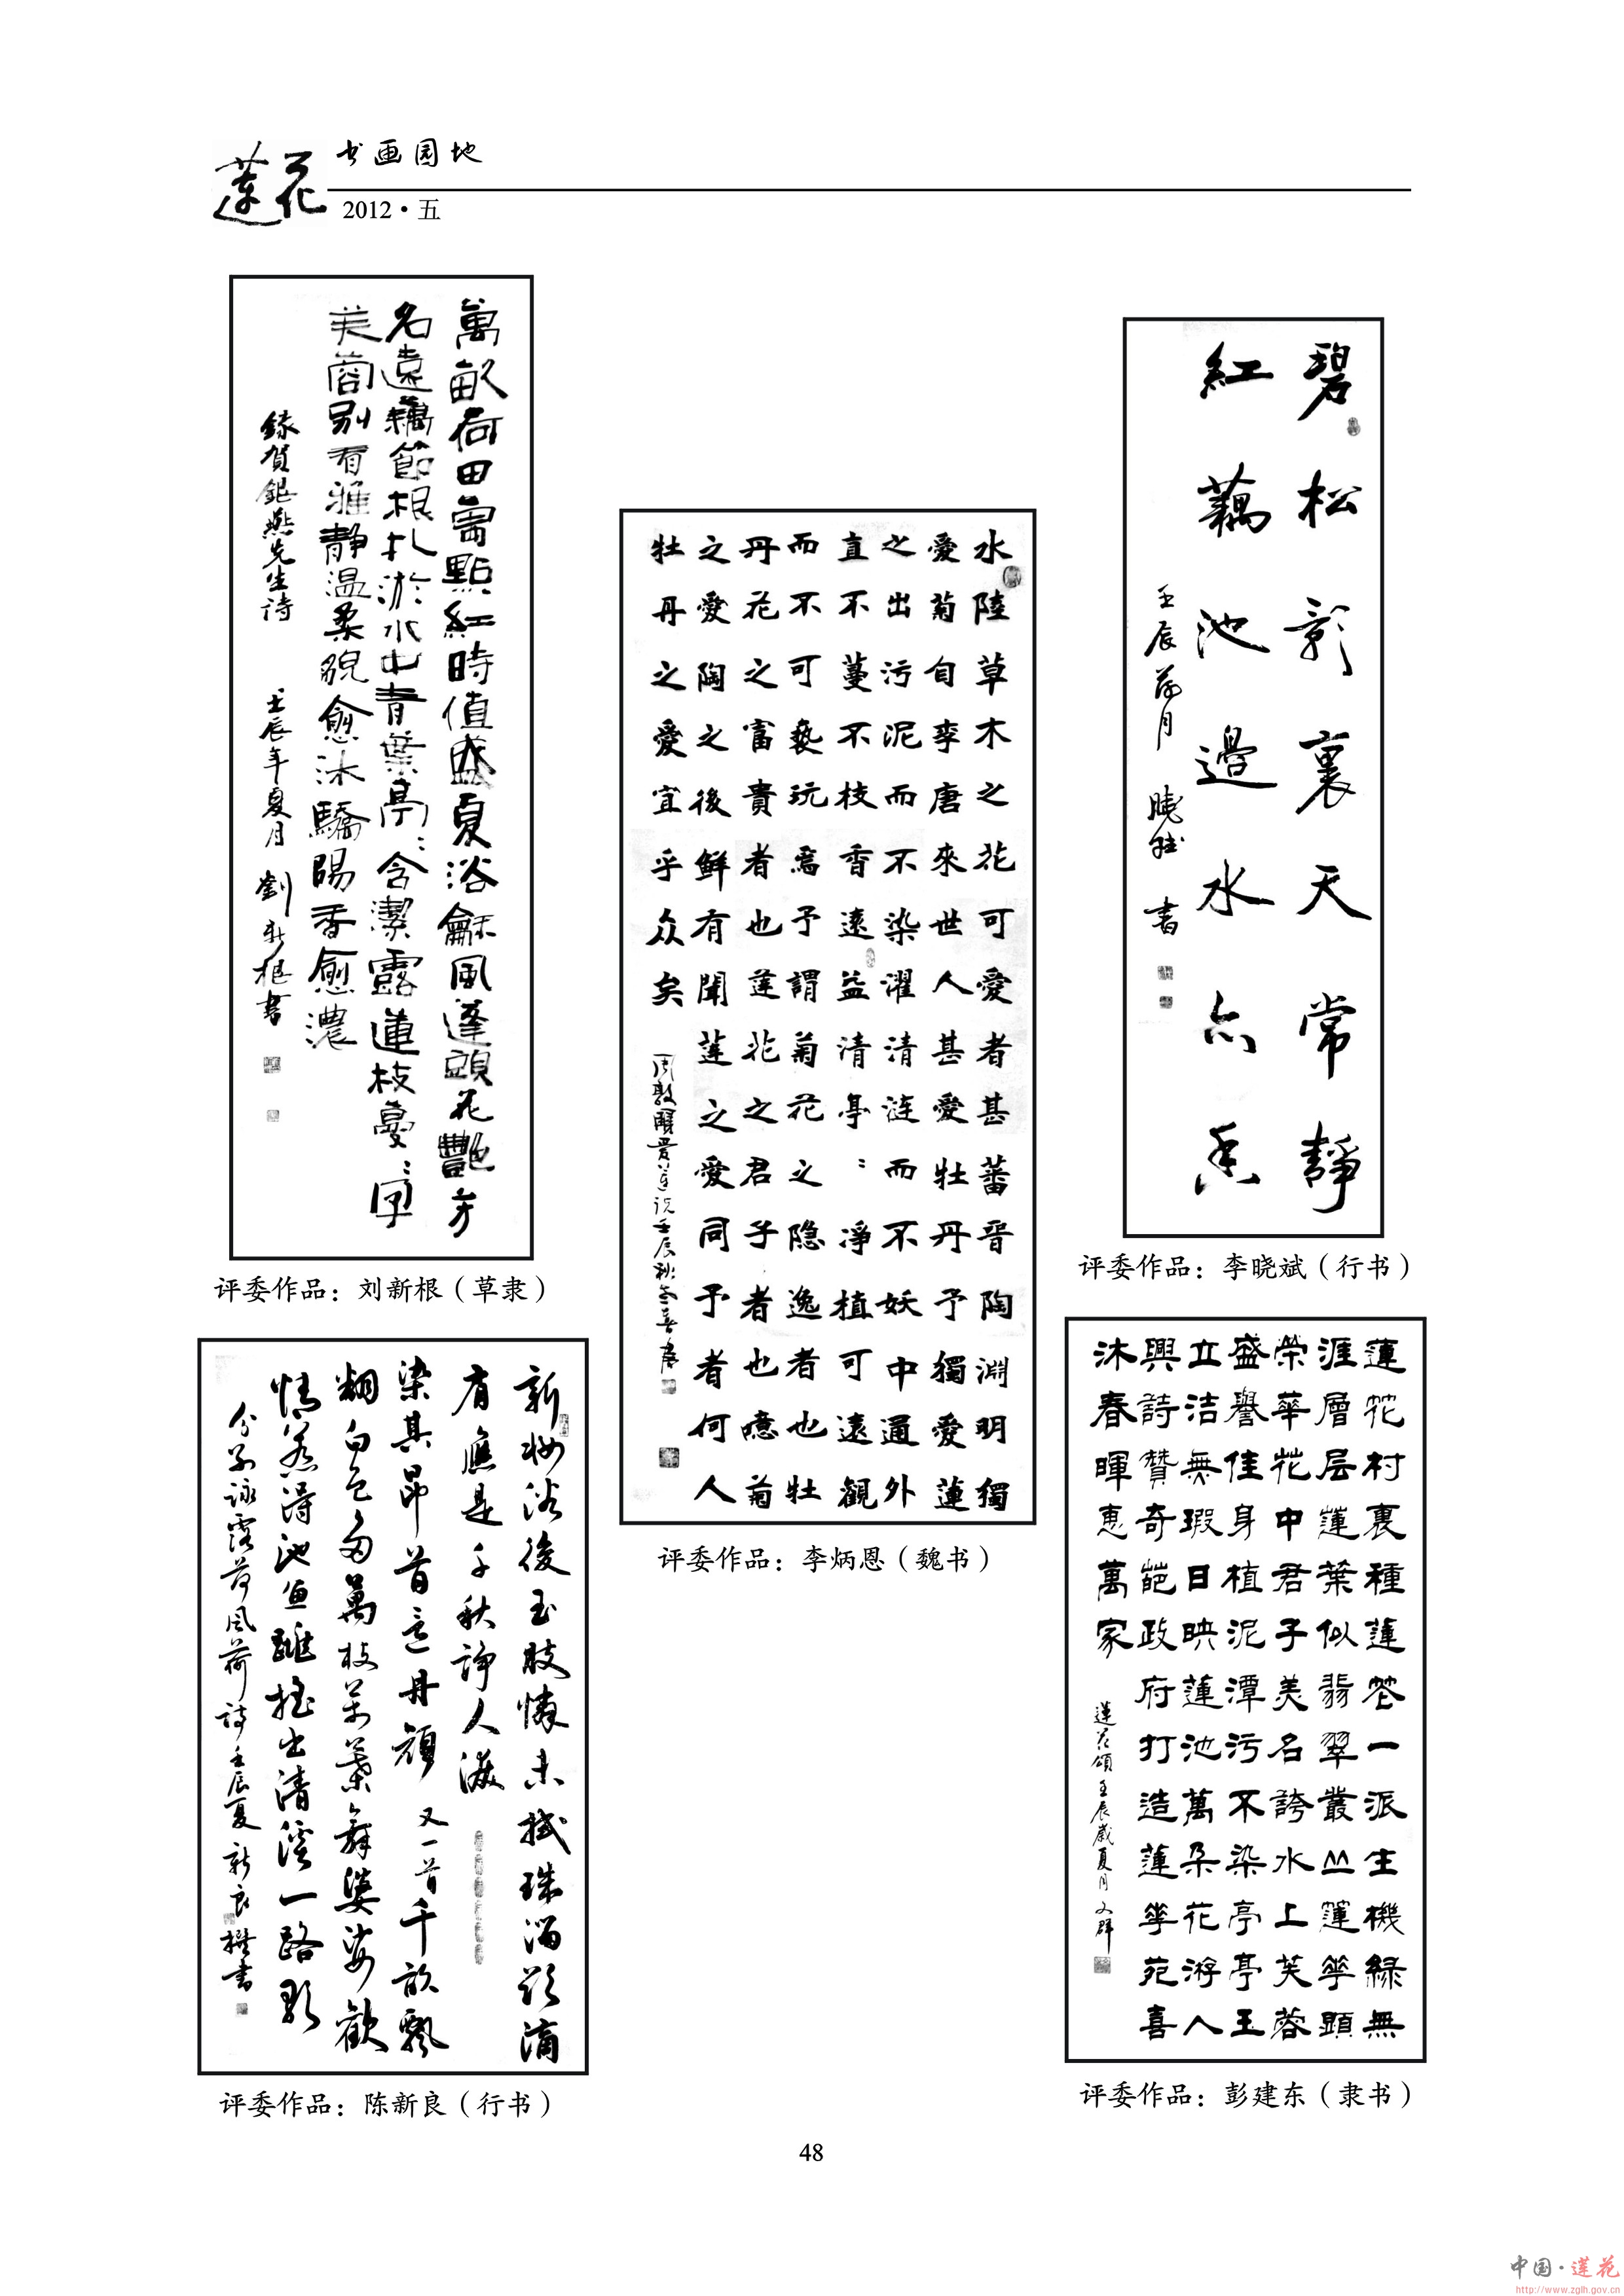 莲花
书画园地
2012·五
萬畝荷田萬點紅時值盛夏浴龢風蓬頭花艷芳
名遠藕節根扎淤水中青葉亭:含潔露蓮枝蔓:
芙蓉别有雅静温柔貌愈沐驕陽香愈濃
錄賀銀燕先生诗 壬辰年夏月 劉新根書
评委作品：刘新根（草隶）
水陸草木之花可愛者甚蕃晋陶淵明獨
愛菊自李唐來世人甚愛牡丹予獨愛蓮
之出污泥而不染濯清涟而不妖中通外
直不蔓不枝香遠益清亭:淨植可遠觀
而不可亵玩焉予謂菊花之隐逸者也牡
丹花之富貴者也莲花之君子者也噫菊
之愛陶之後鲜有聞莲之愛同予者何人
牡丹之愛宜乎众矣
周敦頤爱莲说壬辰秋
评委作品：李炳恩（魏书）
碧松影裏天常靜
紅藕池邊水亦香
壬辰荷月 晓斌書
评委作品：李晓斌（行书）
新妆浴後玉肢慵未拭珠溜欲滴
有應是千秋诤人滋
染其昂首意丹頑 又一首千畝飄
翻白色多萬枝茶葉舞婆娑歡
情惹得池魚躍搖出清溪一路歌
詠露荷風荷詩壬辰夏新良撰書
评委作品：陈新良（行书）
蓮花村裏種蓮花一派生機緑無
涯層层蓮葉似翡翠叢丛蓮華顯
榮華花中君子美名誇水上芙蓉
盛譽佳身植泥潭污不染亭亭玉
立洁無瑕日映蓮池萬朵花游人
興詩贊奇葩政府打造蓮華苑喜
沐春暉惠萬家
蓮花頌壬辰歲夏月文群
评委作品：彭建东（隶书）
48
中国·莲花
http://www.zglh.gov.cn